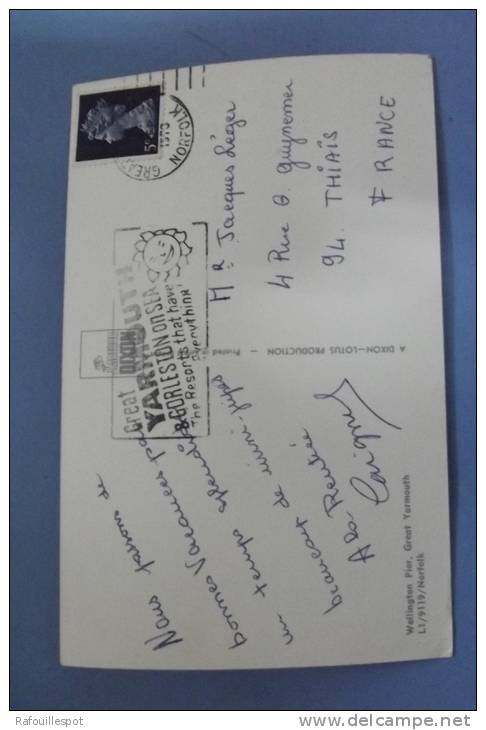 Nous passons de
bonnes Vacances par
un temps splendide
beaucoup de mini-jupes
A la Rentrée
Mr Jacques Léger
4 Rue G. Guynemer
94. THIAIS
FRANCE
GREAT
NORFOLK
1970
5D
Great
YARMOUTH
& GORLESTON ON SEA
The Resorts that have
everything
DIXON
Printed
A DIXON-LOTUS PRODUCTION
Wellington Pier, Great Yarmouth
L1/9119/Norfolk
Rafouillespot
www.delcampe.net